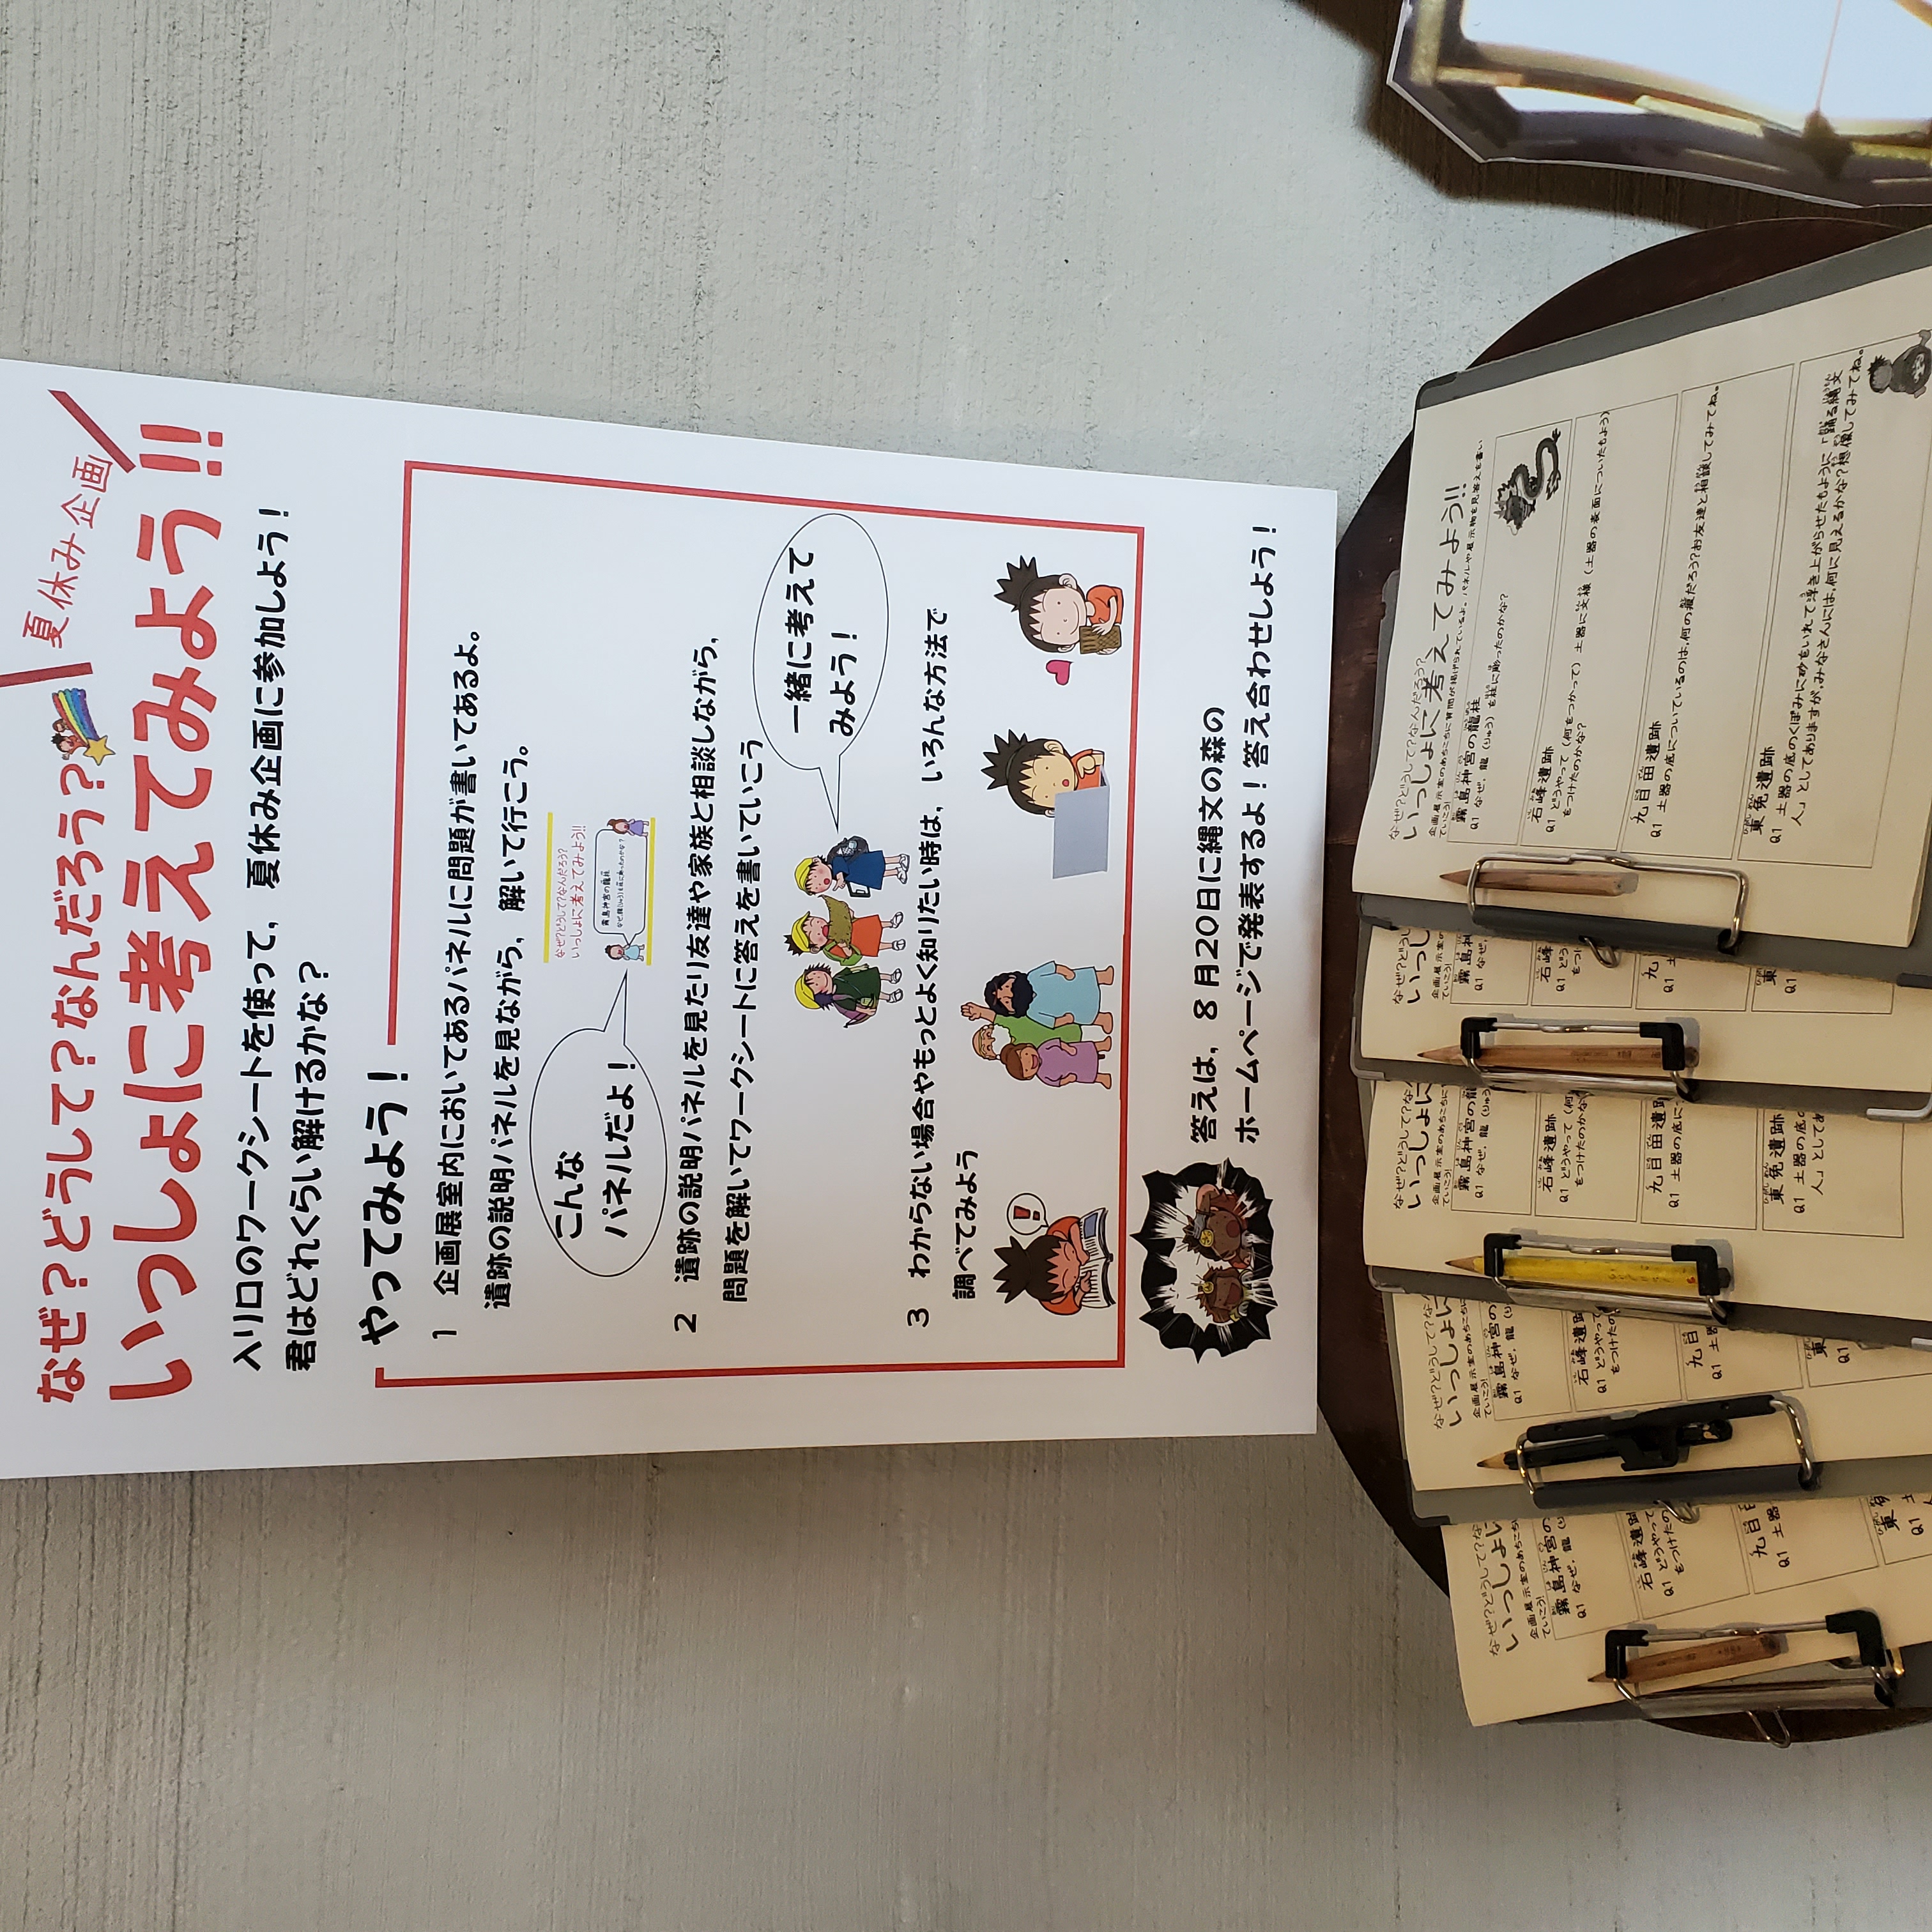 夏休み企画
なぜ？どうして？なんだろう？
いっしょに考えてみよう!!
入り口のワークシートを使って，夏休み企画に参加しよう！
君はどれくらい解けるかな？
やってみよう！
1 企画展室内においてあるパネルに問題が書いてあるよ。
遺跡の説明パネルを見ながら，解いて行こう。
こんな
パネルだよ！
なぜ？どうして？なんだろう？
いっしょに考えてみよう!!
霧島神宮の龍柱
2 遺跡の説明パネルを見たり友達や家族と相談しながら，
問題を解いてワークシートに答えを書いていこう
一緒に考えて
みよう！
3 わからない場合やもっとよく知りたい時は，いろんな方法で
調べてみよう
答えは，８月20日に縄文の森の
ホームページで発表するよ！答え合わせしよう！
なぜ？どうして？なんだろう？
いっしょに考えてみよう!!
企画展示室のあちこちに質問が掲げられているよ。パネルや展示物を見答えを書い
ていこう!
霧島神宮の龍柱
Q1 なぜ，龍（りゅう）を柱に彫ったのかな？
石峰遺跡
Q1 どうやって（何をつかって）土器に文様（土器の表面についたもよう）
をつけたのかな？
九日田遺跡
Q1 土器の底についているのは，何の痕だろう？お友達と相談してみてね。
東免遺跡
Q1 土器の底のくぼみに砂をいれて浮き上がらせたもように「踊る縄文
人」としてありますが，みなさんには，何に見えるかな？想像してみてね。